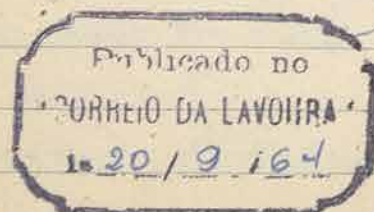 Publicado no
"CORREIO DA LAVOURA"
de 20 / 9 / 64